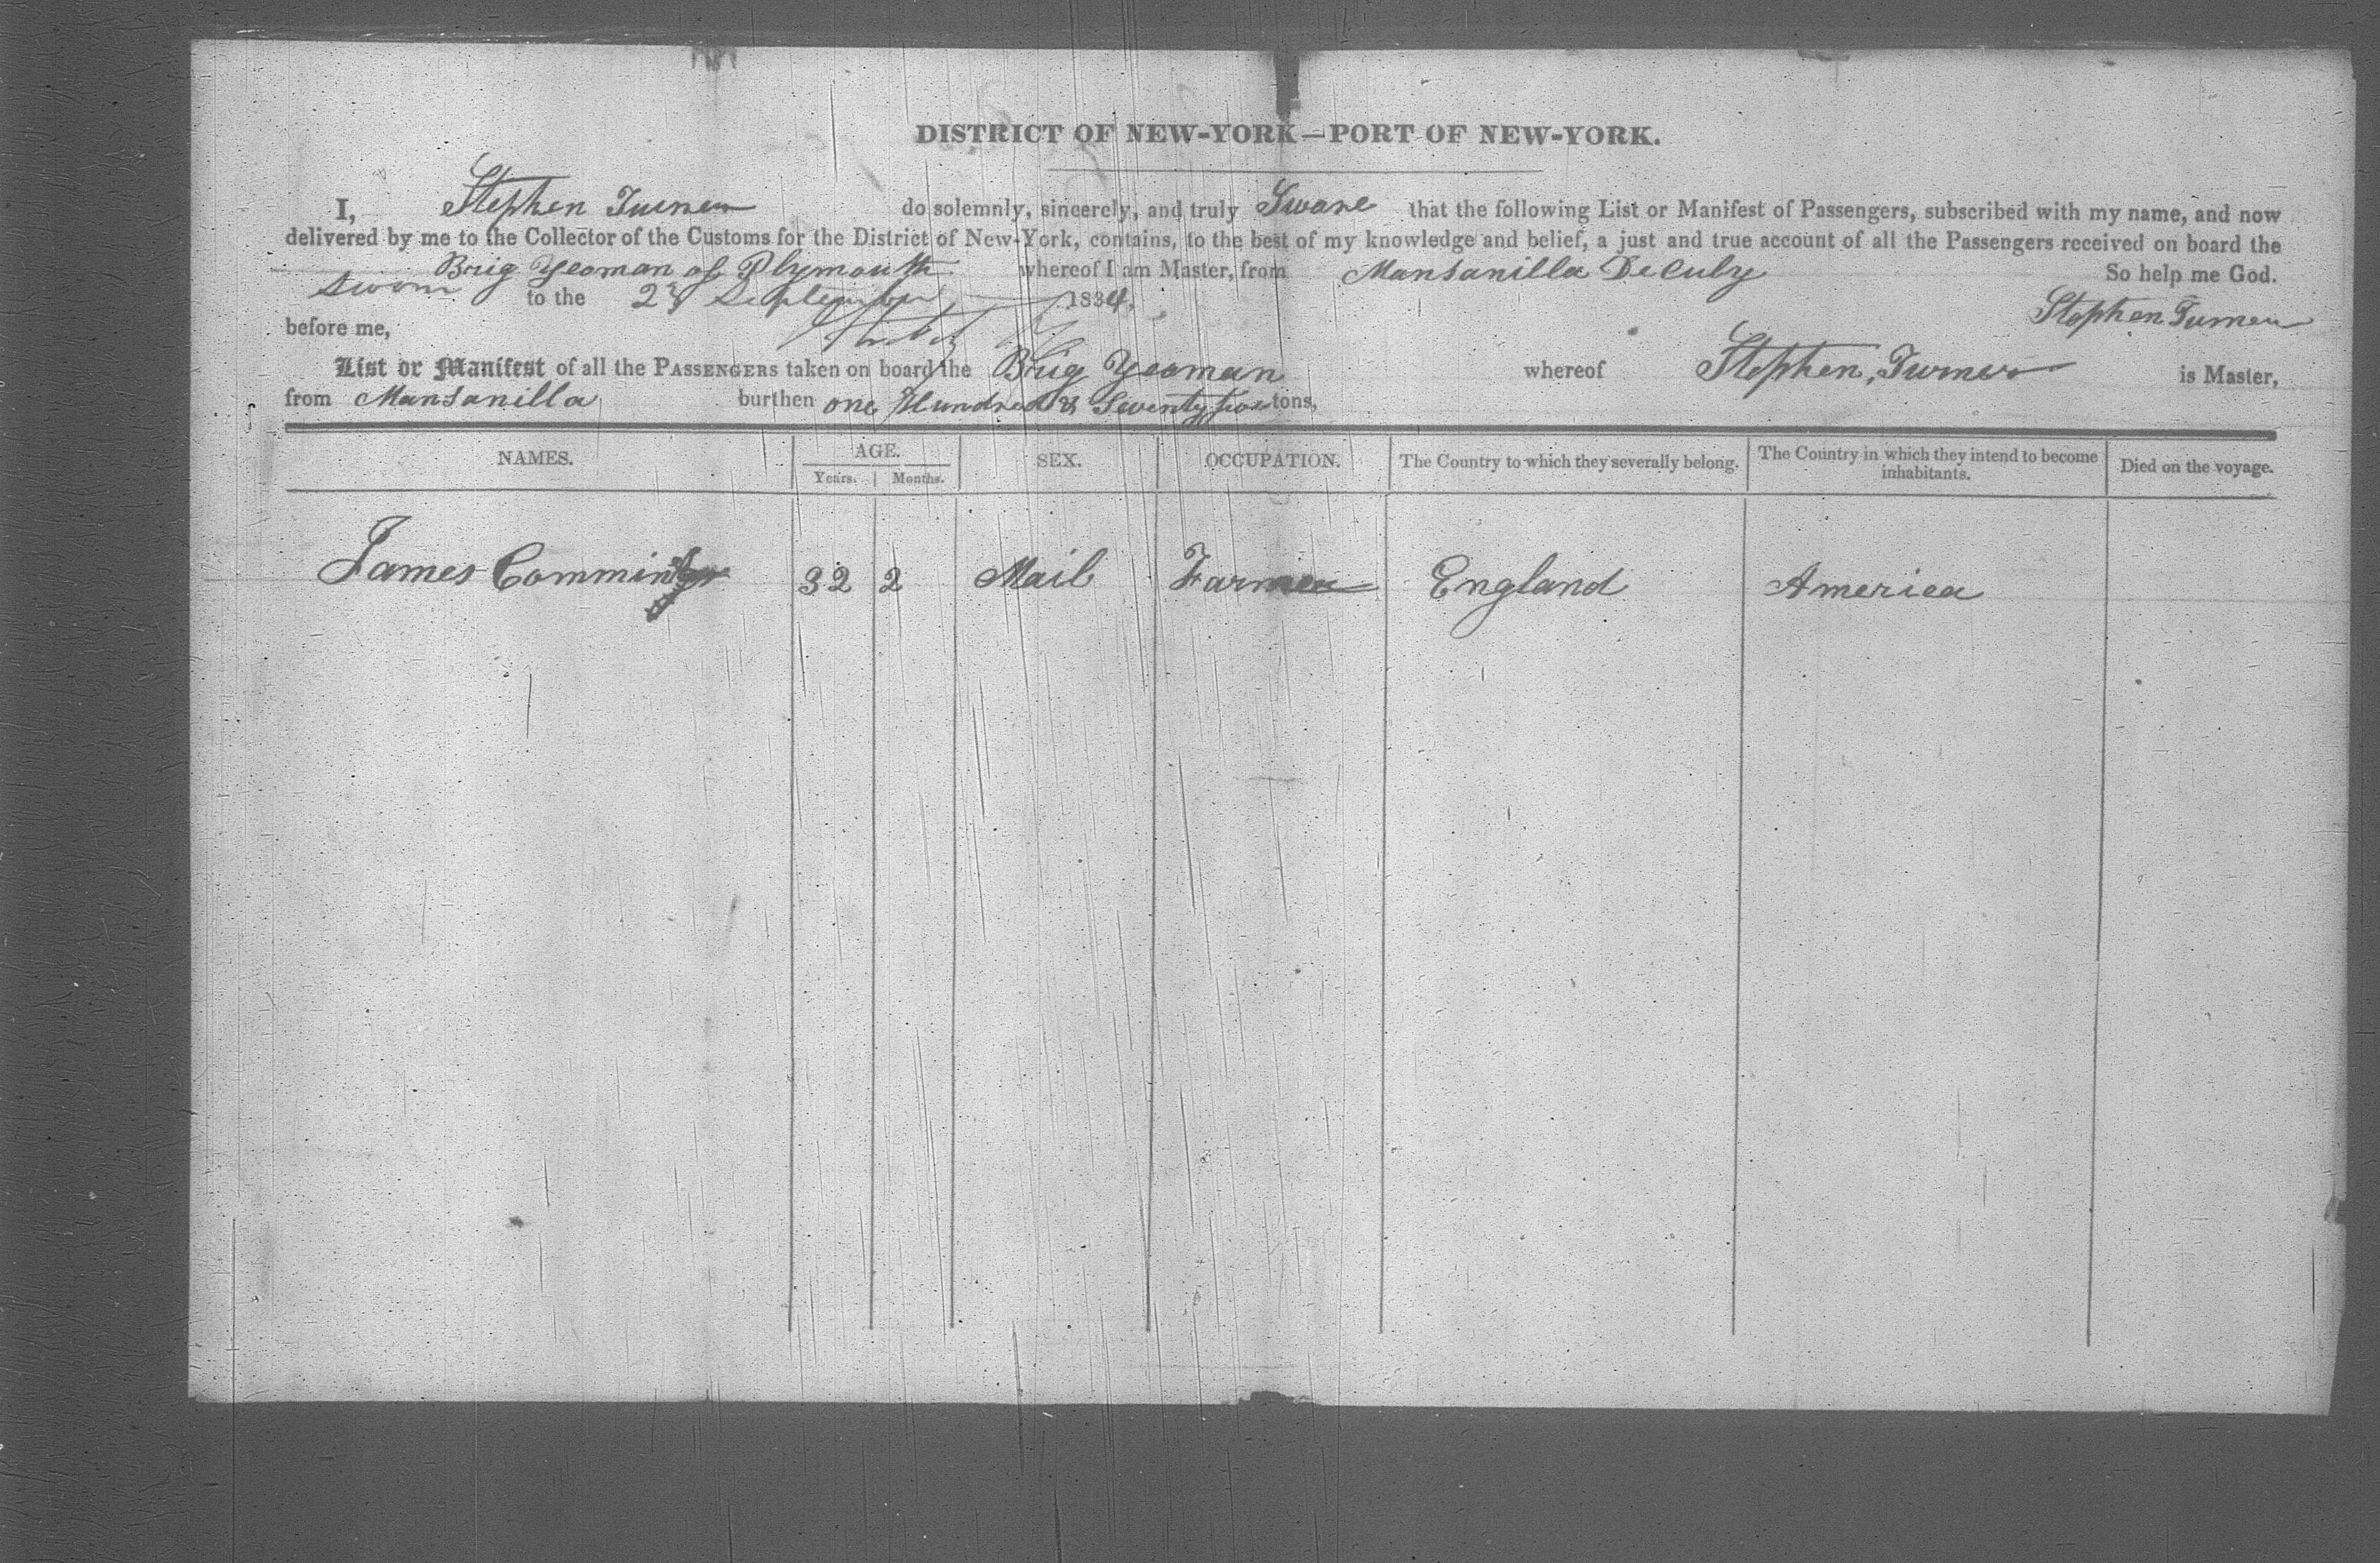 DISTRICT OF NEW-YORK—PORT OF NEW-YORK.
I, Stephen Turner do solemnly, sincerely, and truly Sware that the following List or Manifest of Passengers, subscribed with my name, and now
delivered by me to the Collector of the Customs for the District of New-York, contains, to the best of my knowledge and belief, a just and true account of all the Passengers received on board the
Brig Yeoman of Plymouth whereof I am Master, from Mansanilla De Cuby So help me God.
Sworn to the September 1834. Stephen Turner
before me,
List or Manifest of all the PASSENGERS taken on board the Brig Yeoman whereof Stephen, Turner is Master,
from Mansanilla burthen one Hundred & tons,
NAMES. AGE. SEX. OCCUPATION. The Country to which they severally belong. The Country in which they intend to become inhabitants. Died on the voyage.
Years. Months.
James 32 2 Mail Farmer England America